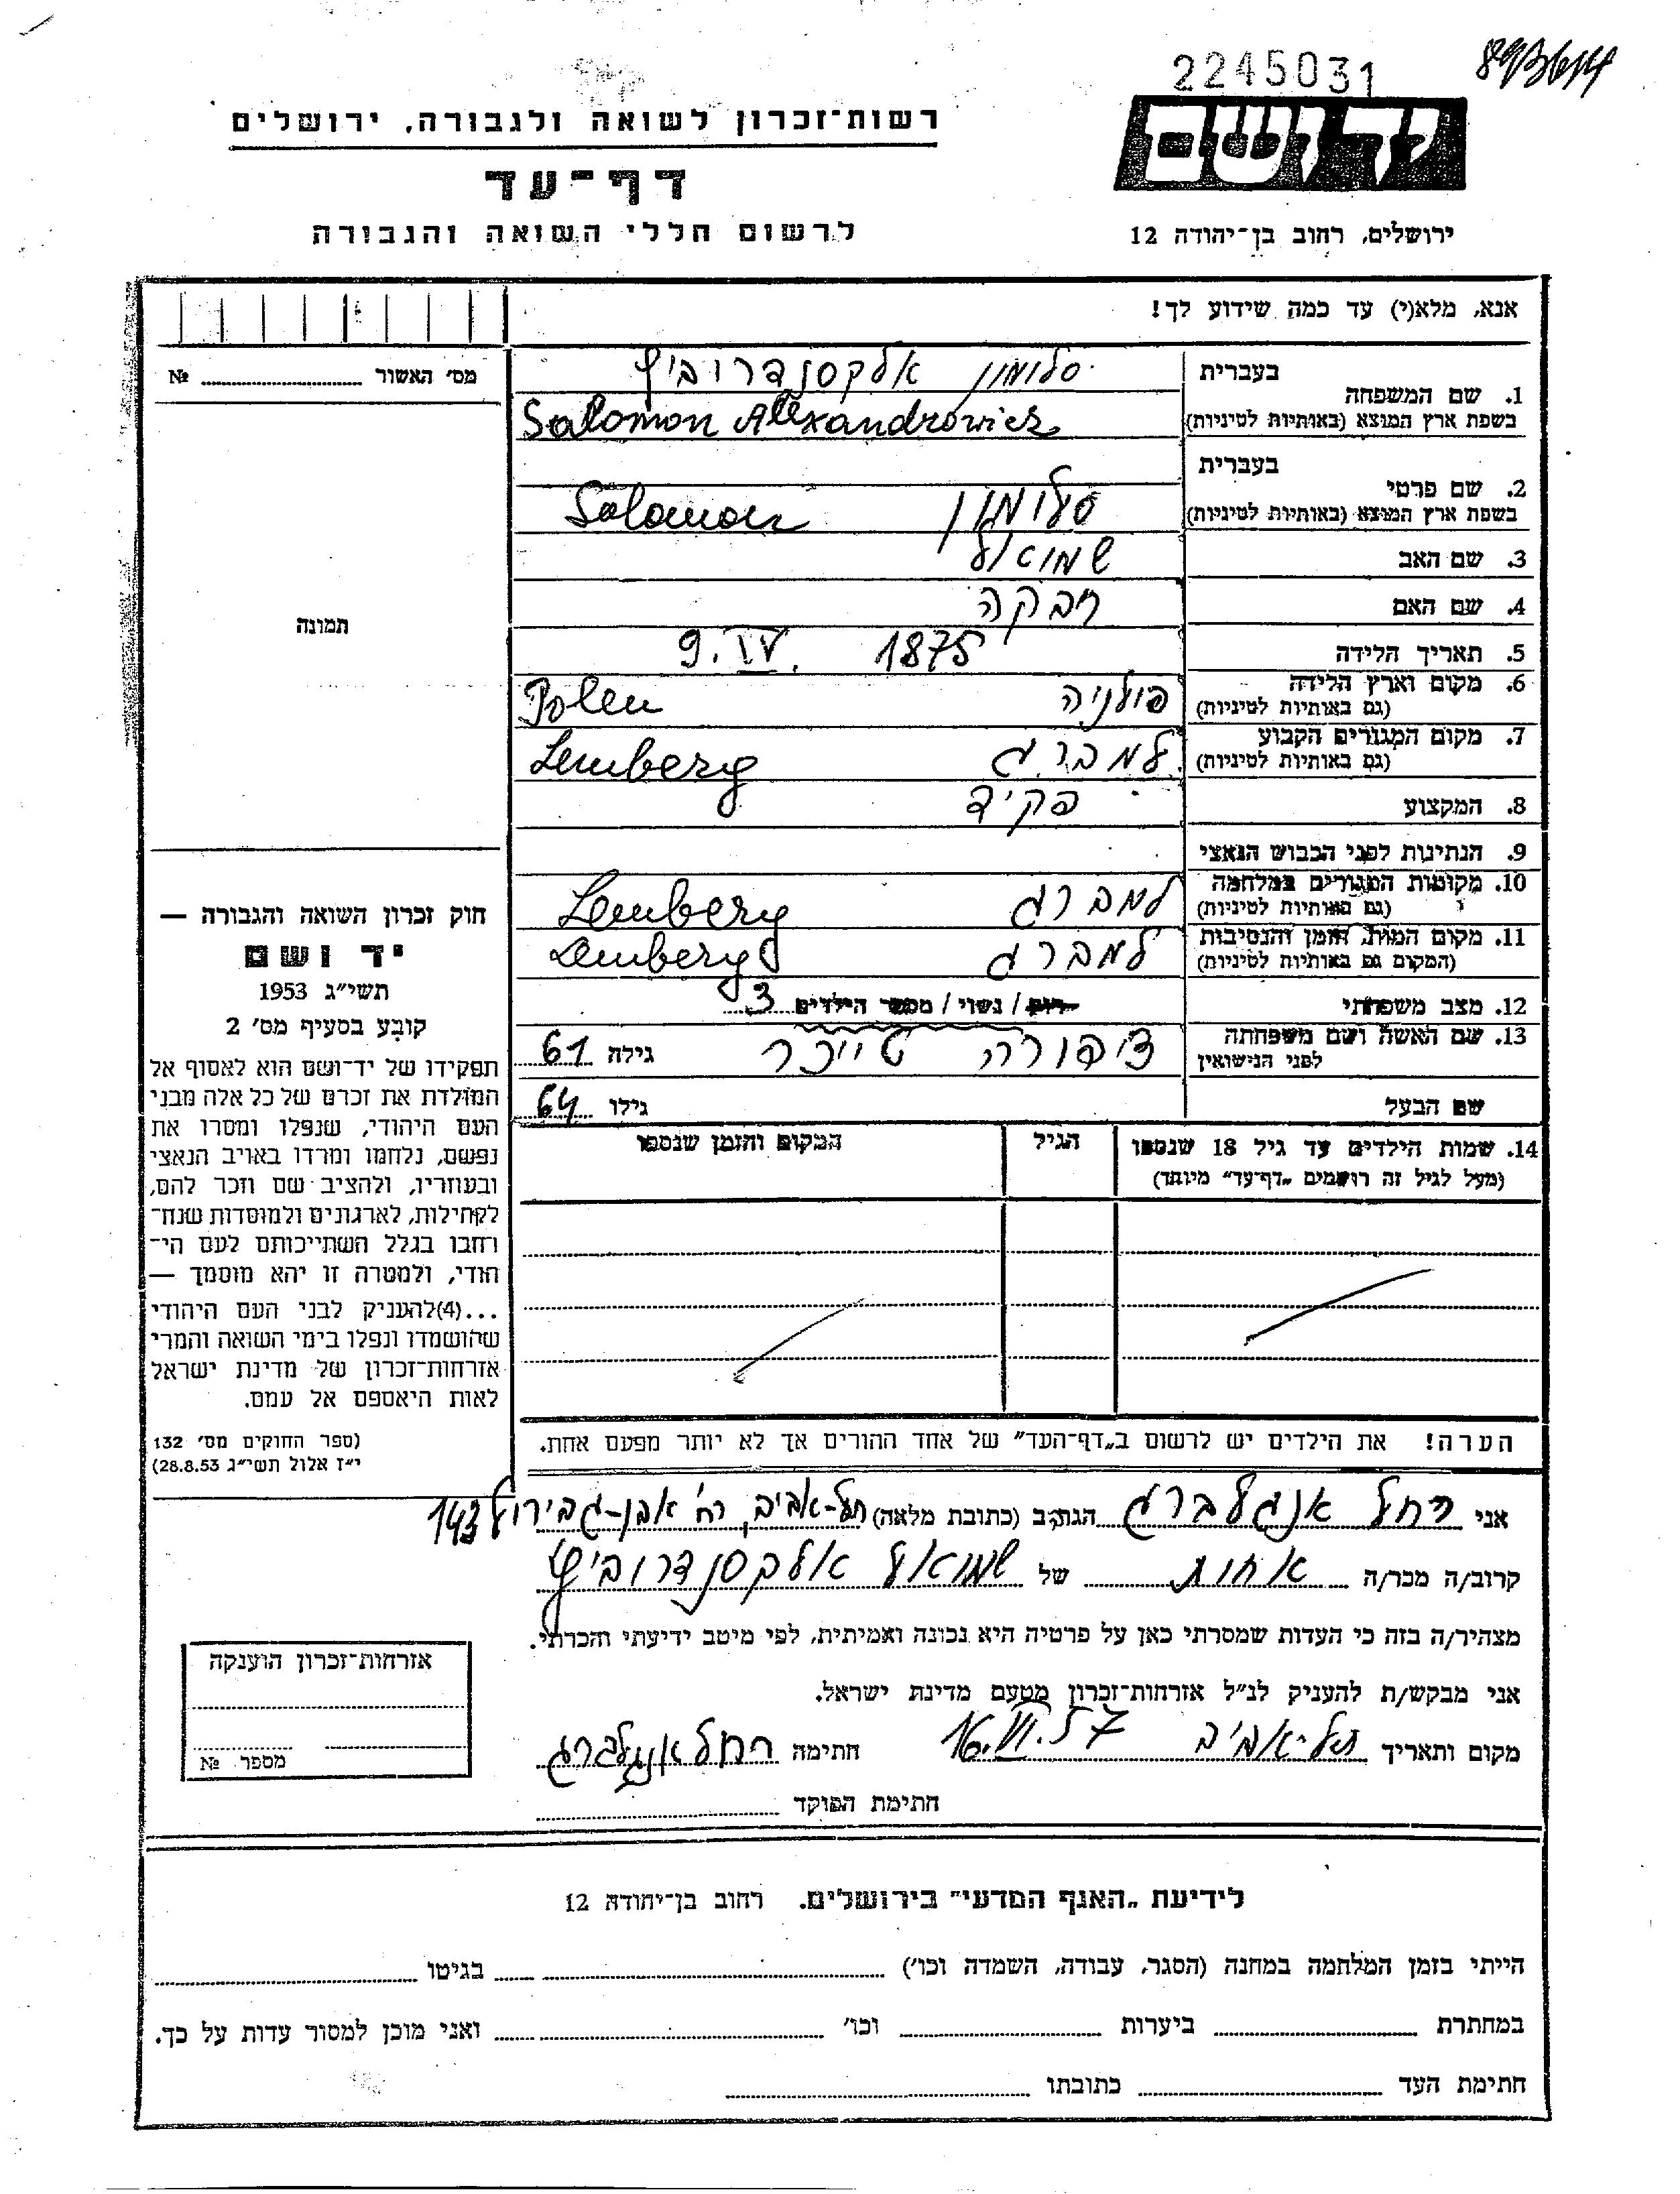 2245031
רשות־זכרון לשואה ולגבורה, ירושלים
דף־עד
לרשום חללי השואה והגבורה
יד ושם
ירושלים, רחוב בן־יהודה 12
אנא, מלא(י) עד כמה שידוע לך!
מס׳ האשור № 
תמונה
1. שם המשפחה
בעברית סלומון אלקסנדרוביץ
בשפת ארץ המוצא (באותיות לטיניות) Salomon Alexandrowicz
2. שם פרטי
בעברית סלומון
בשפת ארץ המוצא (באותיות לטיניות) Salomon
3. שם האב שמואל
4. שם האם רבקה
5. תאריך הלידה 9. IV. 1875
6. מקום וארץ הלידה פולניה Polen
(גם באותיות לטיניות)
7. מקום המגורים הקבוע למברג Lemberg
(גם באותיות לטיניות)
8. המקצוע פקיד
9. הנתינות לפני הכבוש הנאצי
10. מקומות המגורים במלחמה למברג Lemberg
(גם באותיות לטיניות)
11. מקום המות, הזמן והנסיבות למברג Lemberg
(המקום גם באותיות לטיניות)
12. מצב משפחתי רווק / נשוי / מספר הילדים 3
13. שם האשה ושם משפחתה ציפורה טייכר גילה 61
לפני הנישואין
שם הבעל גילו 64
14. שמות הילדים עד גיל 18 שנספו הגיל המקום והזמן שנספו
(מעל לגיל זה רושמים „דף־עד״ מיוחד)
הערה! את הילדים יש לרשום ב„דף־העד״ של אחד ההורים אך לא יותר מפעם אחת.
חוק זכרון השואה והגבורה —
יד ושם
תשי״ג 1953
קובע בסעיף מס׳ 2
תפקידו של יד־ושם הוא לאסוף אל
המולדת את זכרם של כל אלה מבני
העם היהודי, שנפלו ומסרו את
נפשם, נלחמו ומרדו באויב הנאצי
ובעוזריו, ולהציב שם וזכר להם,
לקהילות, לארגונים ולמוסדות שנח־
רחבו בגלל השתייכותם לעם הי־
הודי, ולמטרה זו יהא מוסמך —
...(4)להעניק לבני העם היהודי
שהושמדו ונפלו בימי השואה והמרי
אזרחות־זכרון של מדינת ישראל
לאות היאספם אל עמם.
(ספר החוקים מס׳ 132
י״ז אלול תשי״ג 28.8.53)
אני רחל אנגלברג הגר/ב (כתובת מלאה) תל-אביב, רח׳ אבן-גבירול 143
קרוב/ה מכר/ה אחות של שמואל אלקסנדרוביץ
מצהיר/ה בזה כי העדות שמסרתי כאן על פרטיה היא נכונה ואמיתית, לפי מיטב ידיעתי והכרתי.
אני מבקש/ת להעניק לנ״ל אזרחות־זכרון מטעם מדינת ישראל.
מקום ותאריך תל-אביב 57 חתימה רחל אנגלברג
חתימת הפוקד
אזרחות־זכרון הוענקה
מספר №
לידיעת „האגף המדעי״ בירושלים. רחוב בן־יהודה 12
הייתי בזמן המלחמה במחנה (הסגר, עבודה, השמדה וכו׳) בגיטו
במחתרת ביערות וכו׳ ואני מוכן למסור עדות על כך.
חתימת העד כתובתו